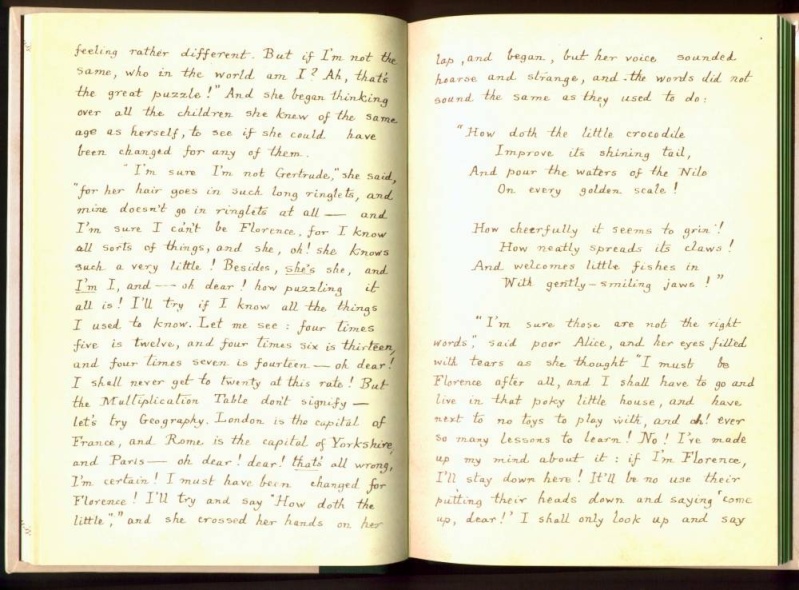 feeling rather different. But if I'm not the
same, who in the world am I? Ah, that's
the great puzzle!" And she began thinking
over all the children she knew of the same
age as herself, to see if she could have
been changed for any of them.
"I'm sure I'm not Gertrude," she said,
"for her hair goes in such long ringlets, and
mine doesn't go in ringlets at all — and
I'm sure I can't be Florence, for I know
all sorts of things, and she, oh! she knows
such a very little! Besides, she's she, and
I'm I, and — oh dear! how puzzling it
all is! I'll try if I know all the things
I used to know. Let me see: four times
five is twelve, and four times six is thirteen,
and four times seven is fourteen — oh dear!
I shall never get to twenty at this rate! But
the Multiplication Table don't signify —
let's try Geography. London is the capital of
France, and Rome is the capital of Yorkshire,
and Paris — oh dear! dear! that's all wrong,
I'm certain! I must have been changed for
Florence! I'll try and say "How doth the
little"," and she crossed her hands on her
lap, and began, but her voice sounded
hoarse and strange, and the words did not
sound the same as they used to do:
"How doth the little crocodile
Improve its shining tail,
And pour the waters of the Nile
On every golden scale!
How cheerfully it seems to grin!
How neatly spreads its claws!
And welcomes little fishes in
With gently-smiling jaws!"
"I'm sure those are not the right
words," said poor Alice, and her eyes filled
with tears as she thought "I must be
Florence after all, and I shall have to go and
live in that poky little house, and have
next to no toys to play with, and oh! ever
so many lessons to learn! No! I've made
up my mind about it: if I'm Florence,
I'll stay down here! It'll be no use their
putting their heads down and saying 'come
up, dear!' I shall only look up and say